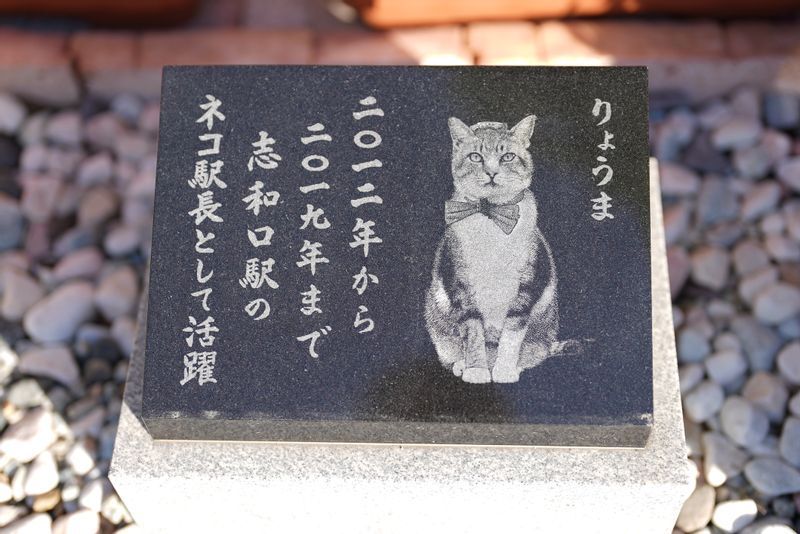 りょうま
二〇一二年から
二〇一九年まで
志和口駅の
ネコ駅長として活躍